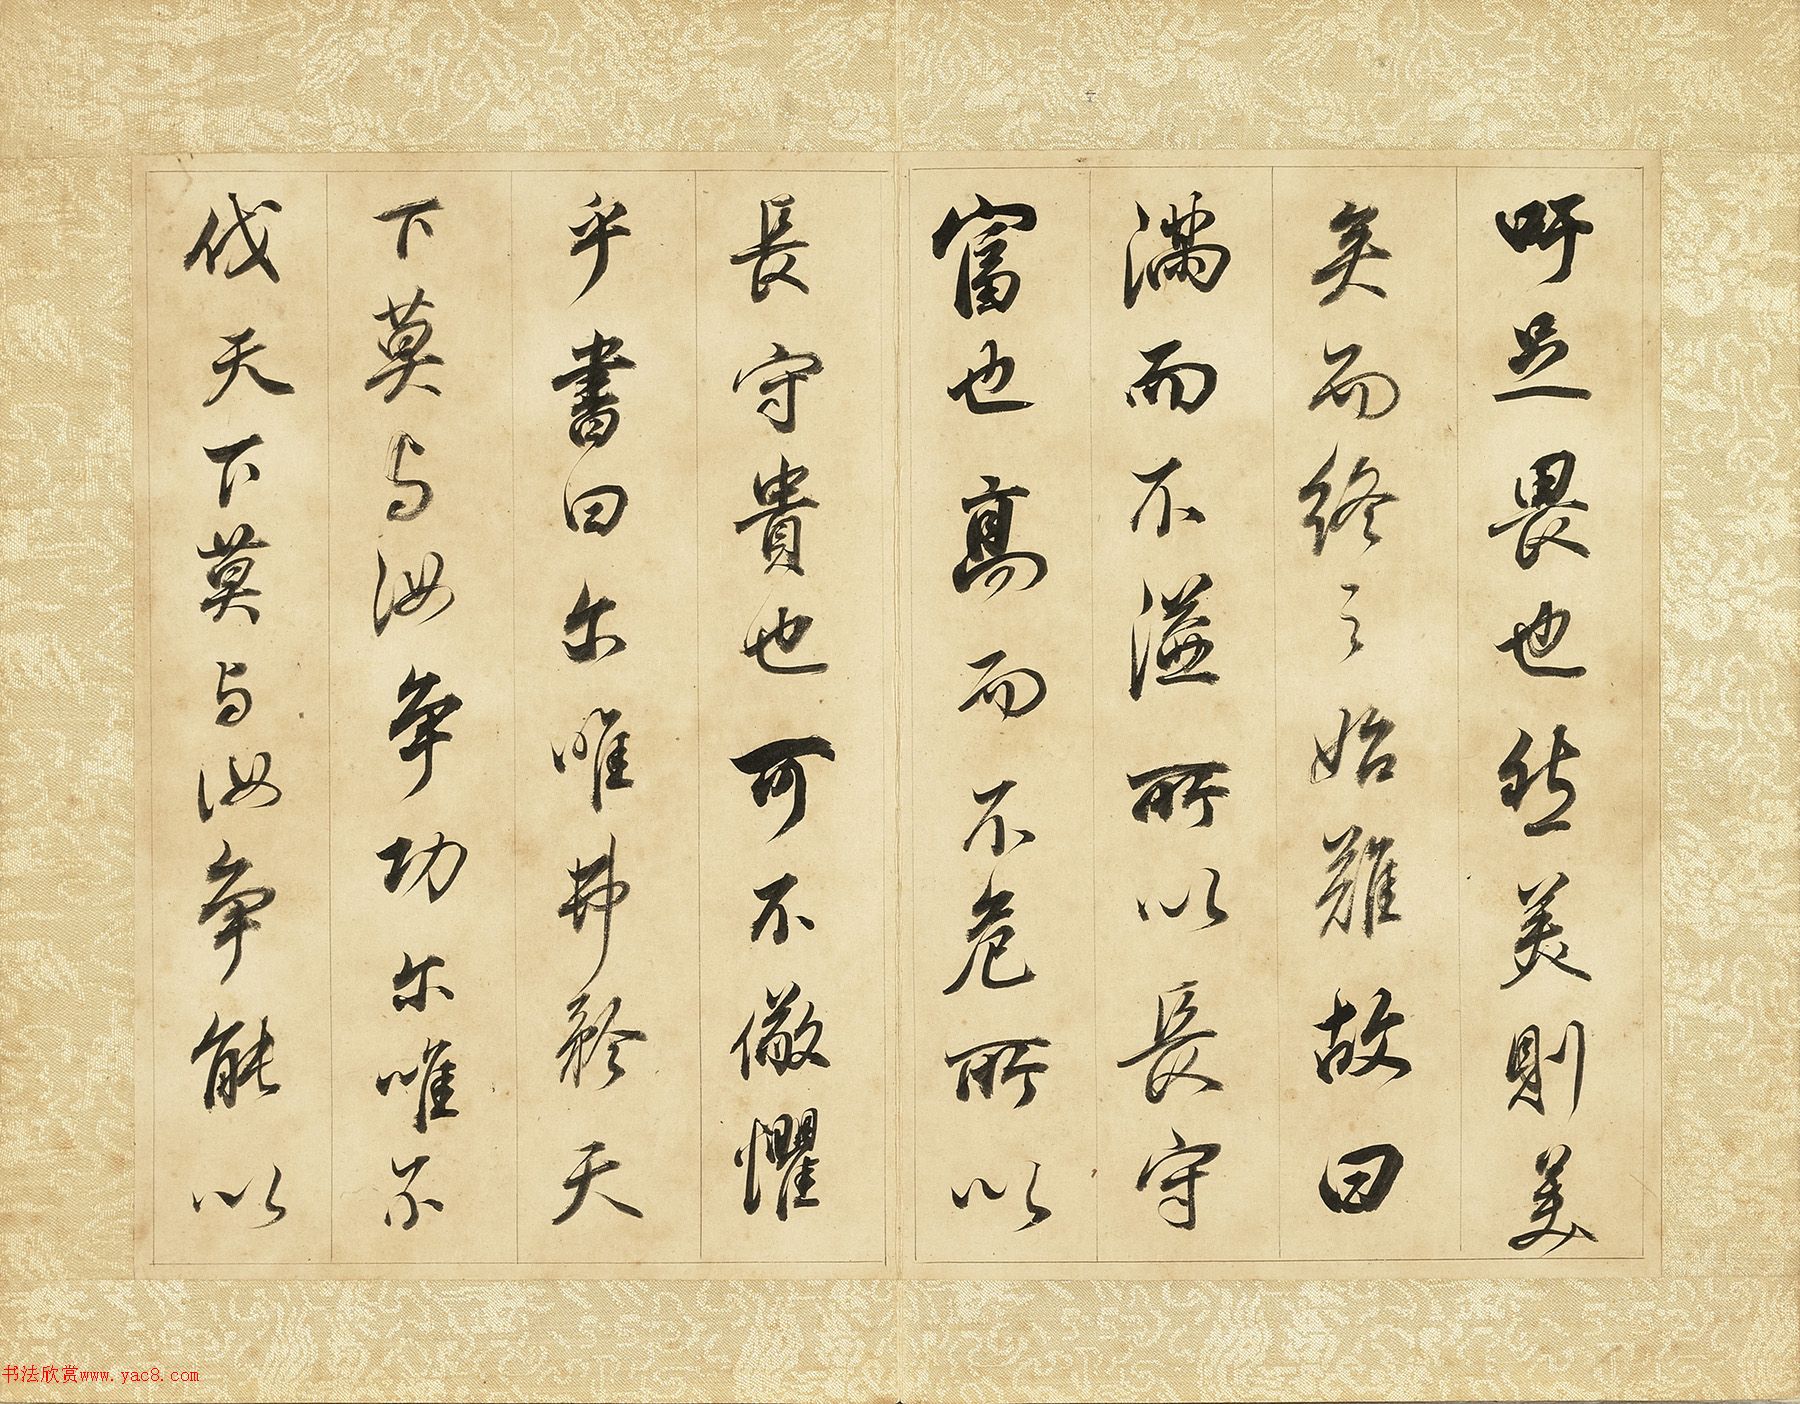 吁足畏也然美則美
矣而終之始難故曰
滿而不溢所以長守
富也高而不危所以
長守貴也可不儆懼
乎書曰尔唯弗矜天
下莫与汝争功尔唯不
伐天下莫与汝争能以
书法欣赏www.yac8.com